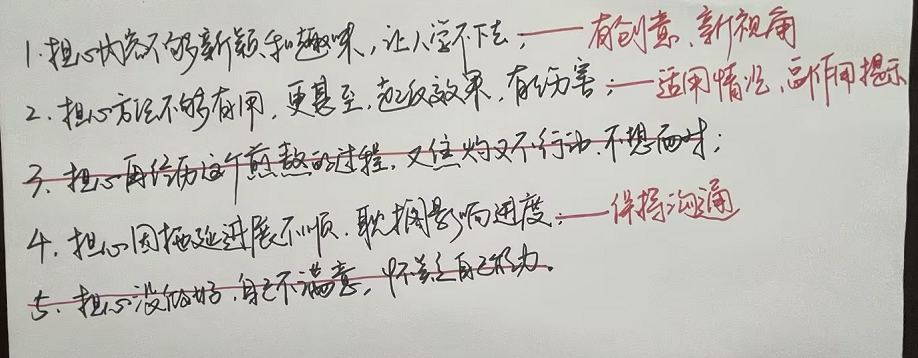 1.担心内容不够新颖和趣味,让人学不下去;——有创意、新视角
2.担心方法不够有用,更甚至,起反效果,有伤害;——适用情况、副作用提示
3.担心再经历这个煎熬的过程,又焦灼又不行动、不想面对;
4.担心因拖延进展不顺、耽搁影响进度;——保持沟通
5.担心没做好,自己不满意,怀疑自己能力。